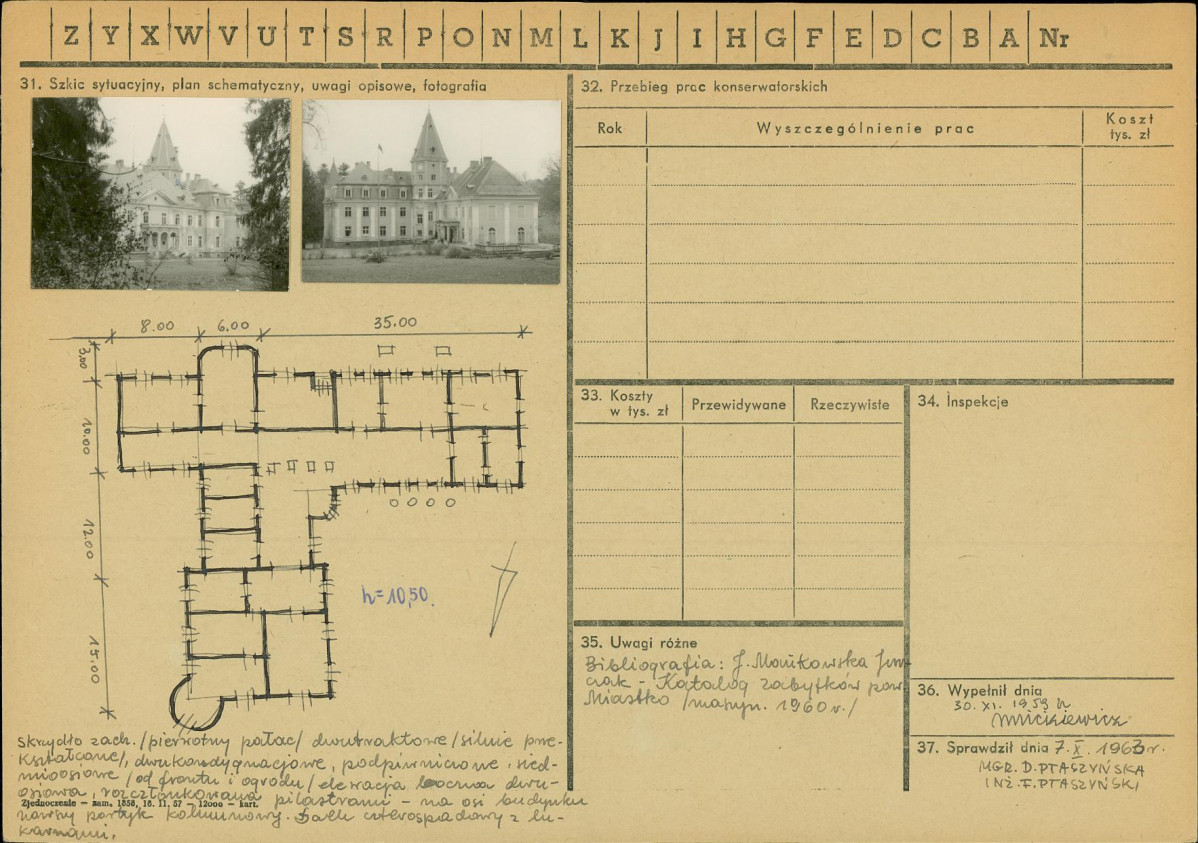 Z Y X W V U T S R P O N M L K J I H G F E D C B A Nr
31. Szkic sytuacyjny, plan schematyczny, uwagi opisowe, fotografia
8.00 6.00 35.00
3.00
10.00
12.00
15.00
h=10,50.
Skrzydło zach. /pierwotny pałac/ dwutraktowe /silnie prze-
kształcone/, dwukondygnacjowe, podpiwniczone, sied-
mioosiowe /od frontu i ogrodu/ elewacja boczna dwu-
osiowa, rozczłonkowana pilastrami - na osi budynku
Zjednoczenie — zam. 1858, 16. 11. 57 — 12000 — kart.
portyk kolumnowy. Dach czterospadowy z lu-
karnami.
32. Przebieg prac konserwatorskich
Rok Wyszczególnienie prac Koszt
tys. zł
33. Koszty
w tys. zł Przewidywane Rzeczywiste
34. Inspekcje
35. Uwagi różne
Bibliografia: J. Manikowska
- Katalog zabytków pow.
Miastko /maszyn. 1960 r./
36. Wypełnił dnia
30. XI. 1959 r
Mickiewicz
37. Sprawdził dnia 7. X. 1963 r.
MGR. D. PTASZYŃSKA
INŻ. F. PTASZYŃSKI